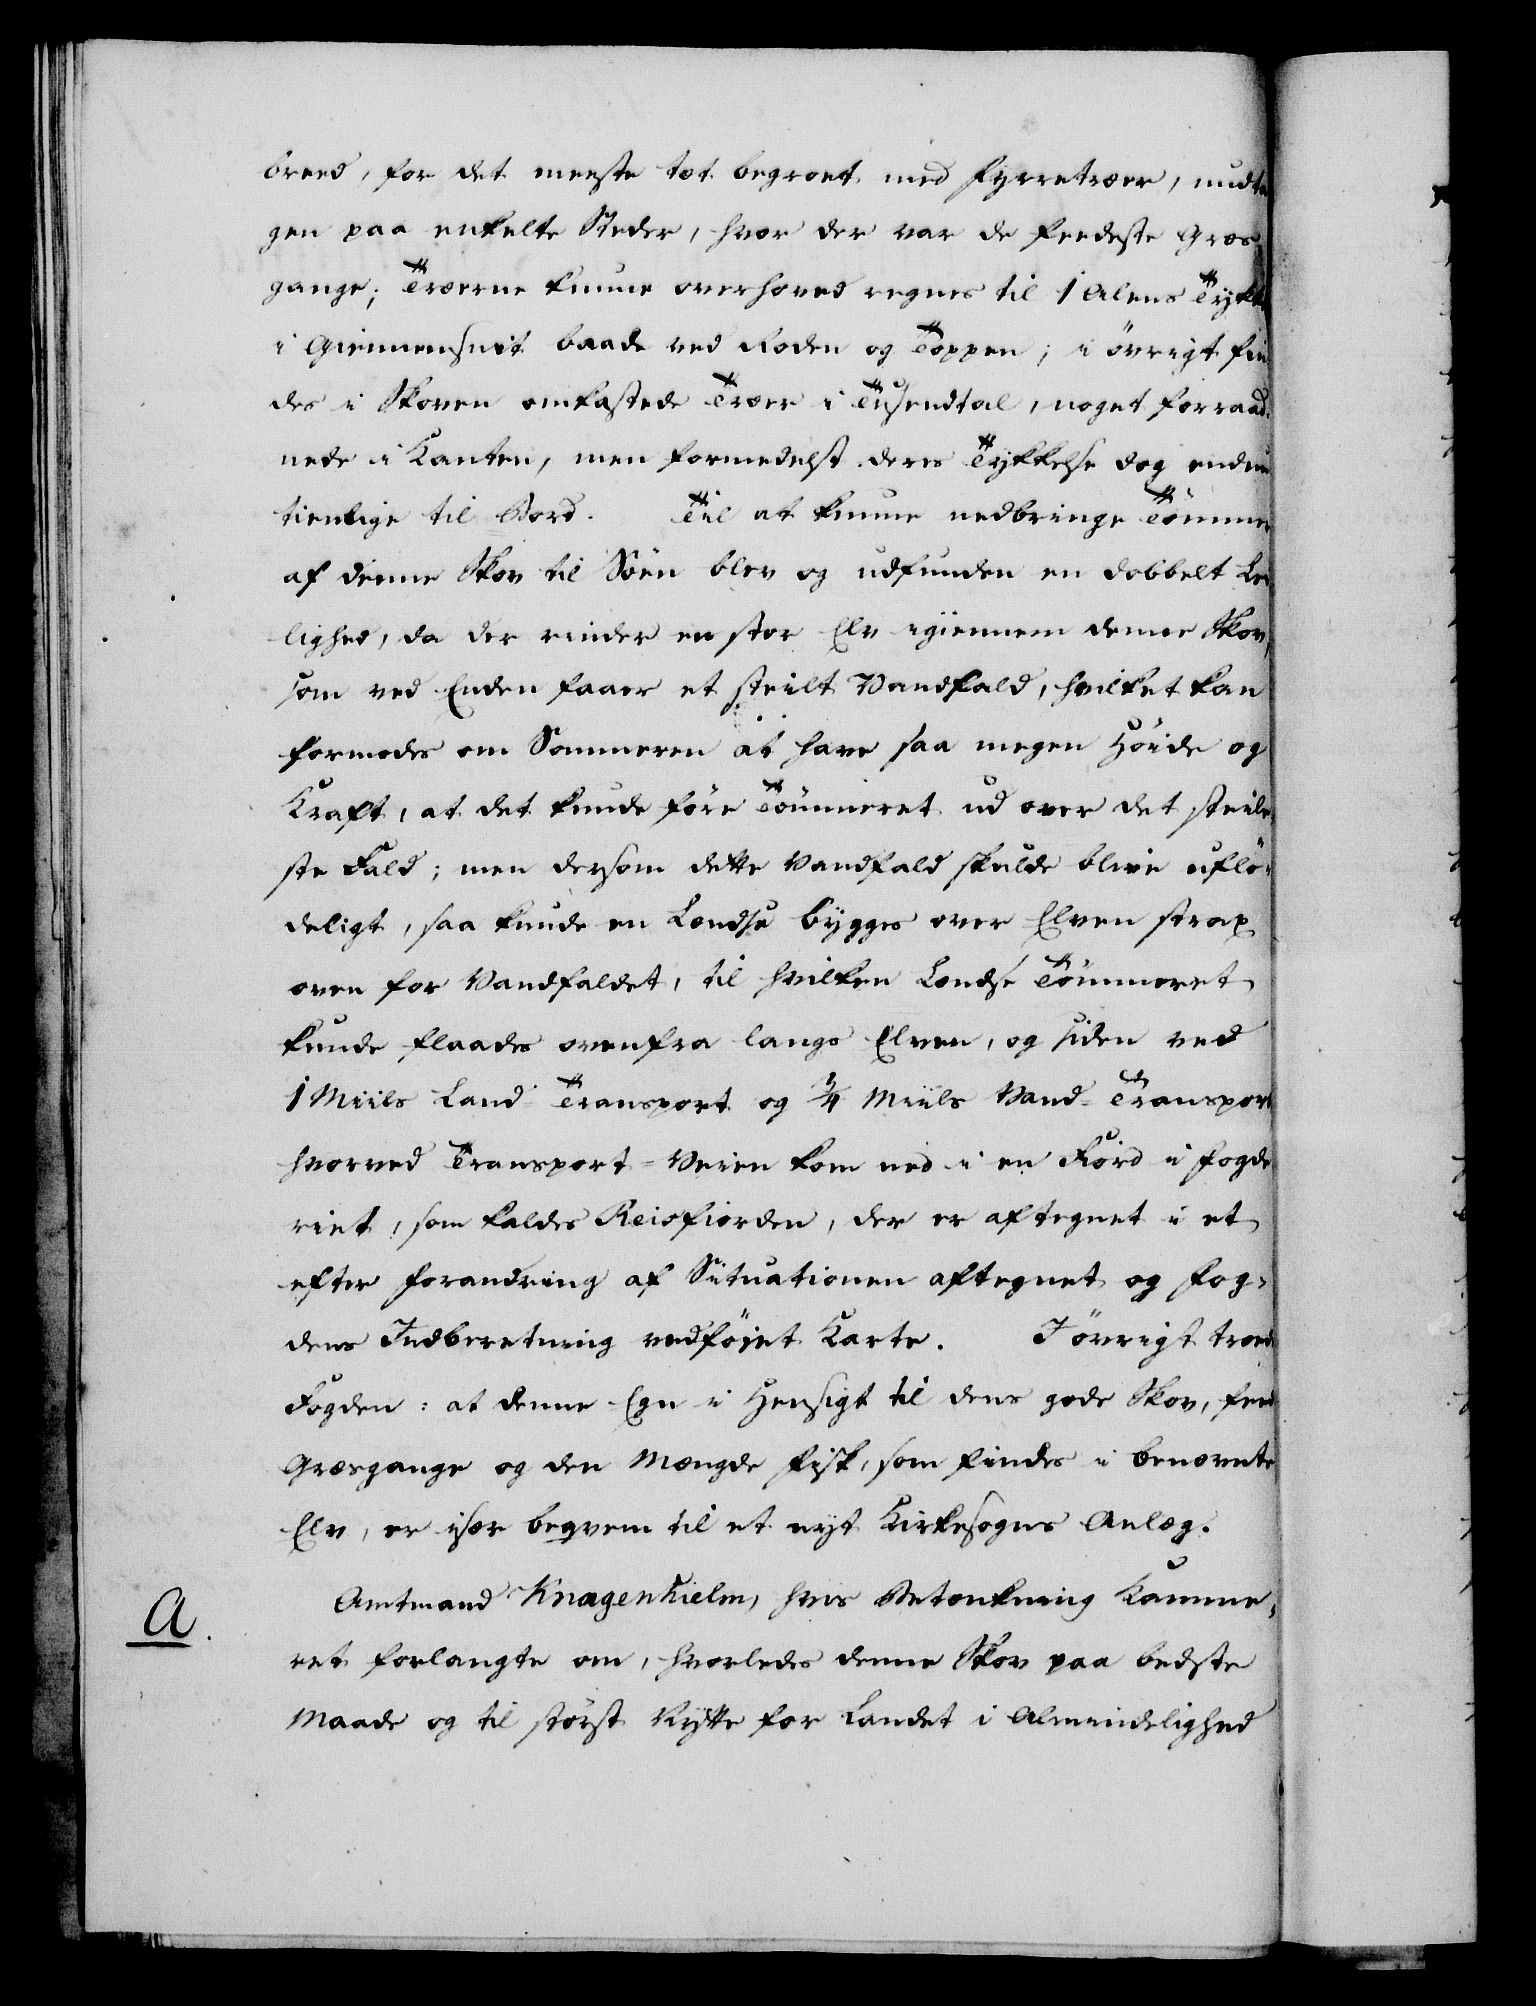 breed, for det meeste tæt begroet med Fyrretræer, undta
gen paa enkelte Steder, hvor der var de feedeste Græs
gange; Træerne kunne overhoved regnes til 1 Alens Tykke
i Giennemsnit baade ved Roden og Toppen; i övrigt fin
des i Skoven omkastede Træer i Tusendtal, noget forraad-
nede i Kanten, men formedelst deres Tykkelse dog endnu
tienlige til Bord. Til at kunne nedbringe Tömmer
af denne Skov til Söen blev og udfunden en dobbelt Lei
lighed, da der rinder en stor Elv igiennem denne Skov,
som ved Enden faaer et steilt Vandfald, hvilket kan
formodes om Sommeren at have saa megen Höide og
Kraft, at det kunde före Tömmeret ud over det steile-
ste Fald; men dersom dette Vandfald skulde blive uflö-
deligt, saa kunde en Lændse bygges over Elven strax
oven for Vandfaldet, til hvilken Lændse Tömmeret
kunde flaades ovenfra langs Elven, og siden ved
1 Miils Land Transport og 3/4 Miils Vand-Transport
hvorved Transport-Veien kom ned i en Fiord i Fogde
riet, som kaldes Reisfiorden, der er aftegnet i et
efter Forandring af Situationen aftegnet og Fog-
dens Indberetning vedföiet Karte. I övrigt troede
Fogden: at denne Egn i Hensigt til dens gode Skov, feed
Græsgange og den Mængde Fisk, som findes i benævnte
Elv, er især beqvem til et nyt Kirkesogns Anlæg.
A. Amtmand Knagenhielm, hvis Betænkning Kamme-
ret forlangte om, hvorledes denne Skov paa bedste
Maade og til störst Nytte for Landet i Almindelighed